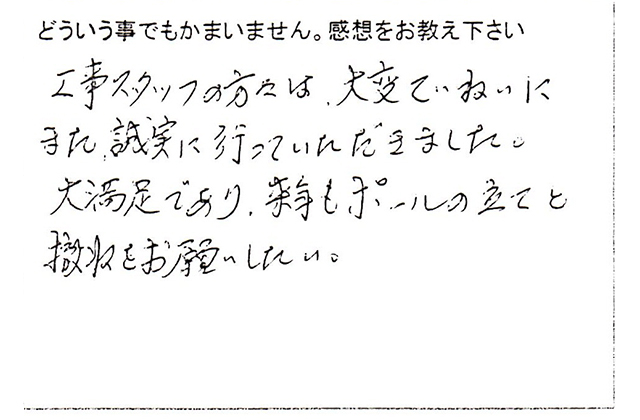 どういう事でもかまいません。感想をお教え下さい
工事スタッフの方々は、大変ていねいに
また、誠実に行っていただきました。
大満足であり、来年もポールの立てと
撤収をお願いしたい。